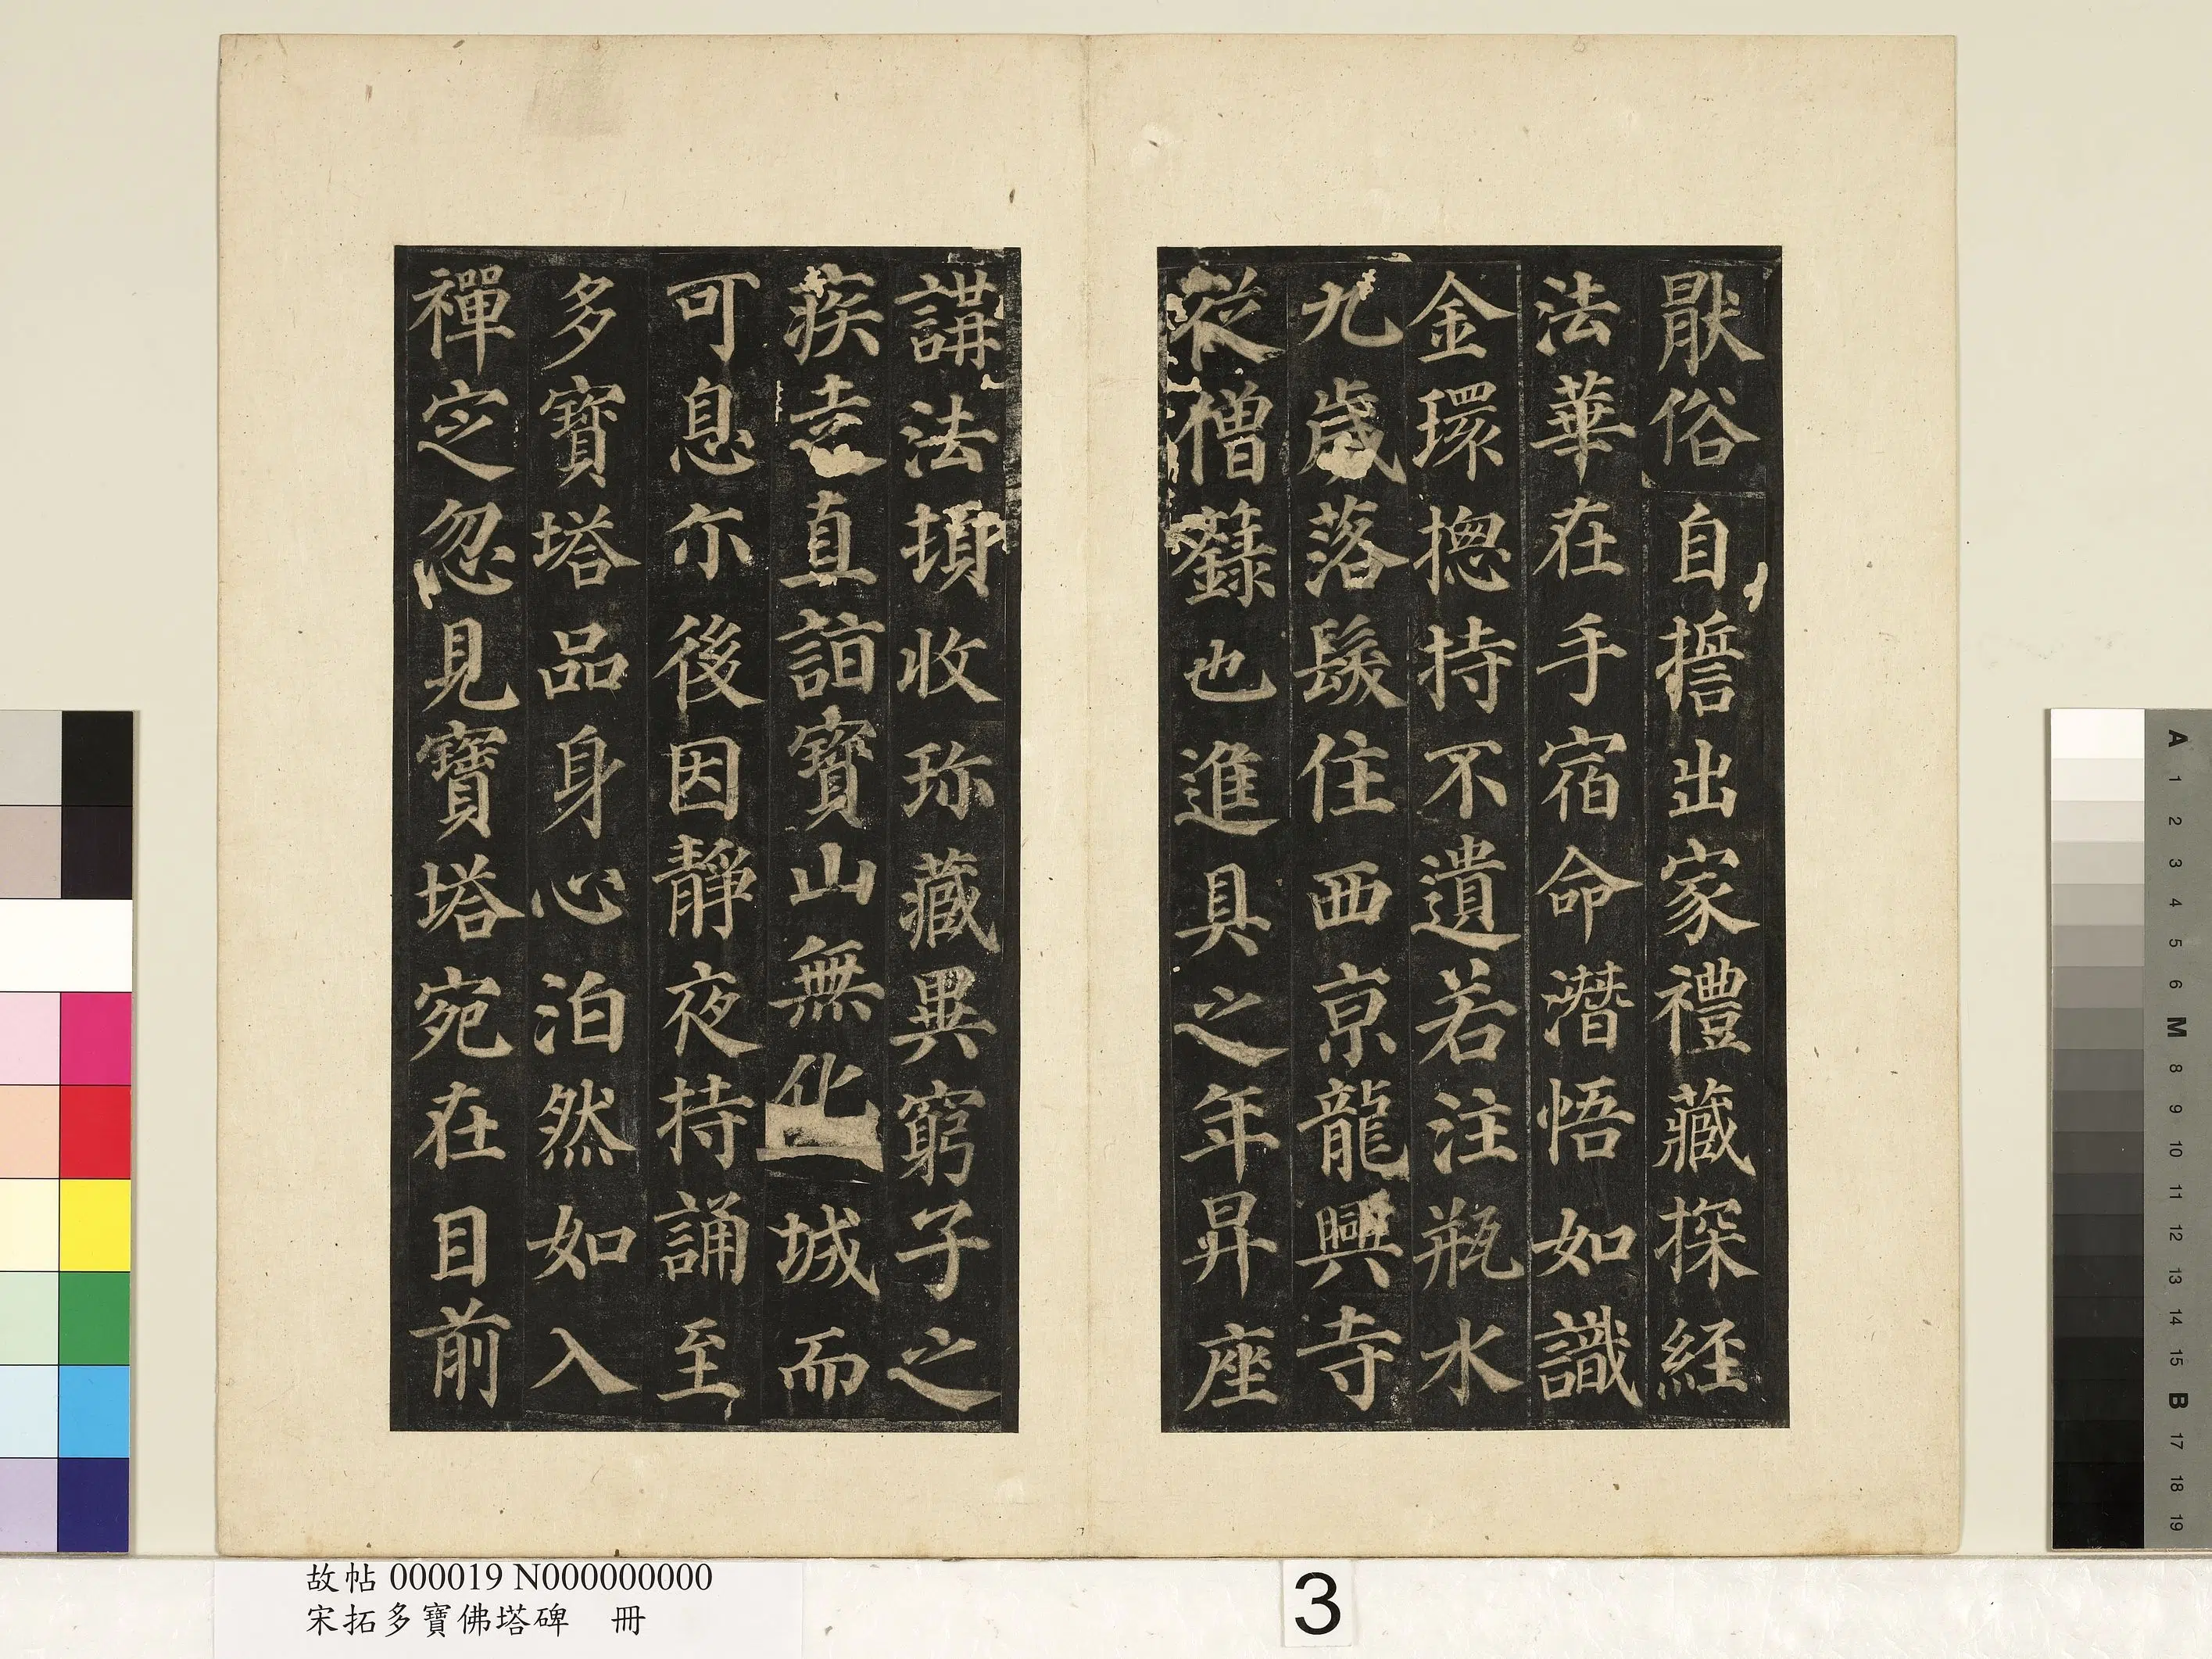 猒俗自誓出家禮藏探經
法華在手宿命潛悟如識
金環揔持不遺若注瓶水
九歲落髮住西京龍興寺
從僧籙也進具之年昇座
講法頓收珎藏異窮子之
疾走直詣寶山無化城而
可息尒後因靜夜持誦至
多寶塔品身心泊然如入
禪定忽見寶塔宛在目前
故帖 000019 N000000000
宋拓多寶佛塔碑 冊
3
A 1 2 3 4 5 6 M 8 9 10 11 12 13 14 15 B 17 18 19